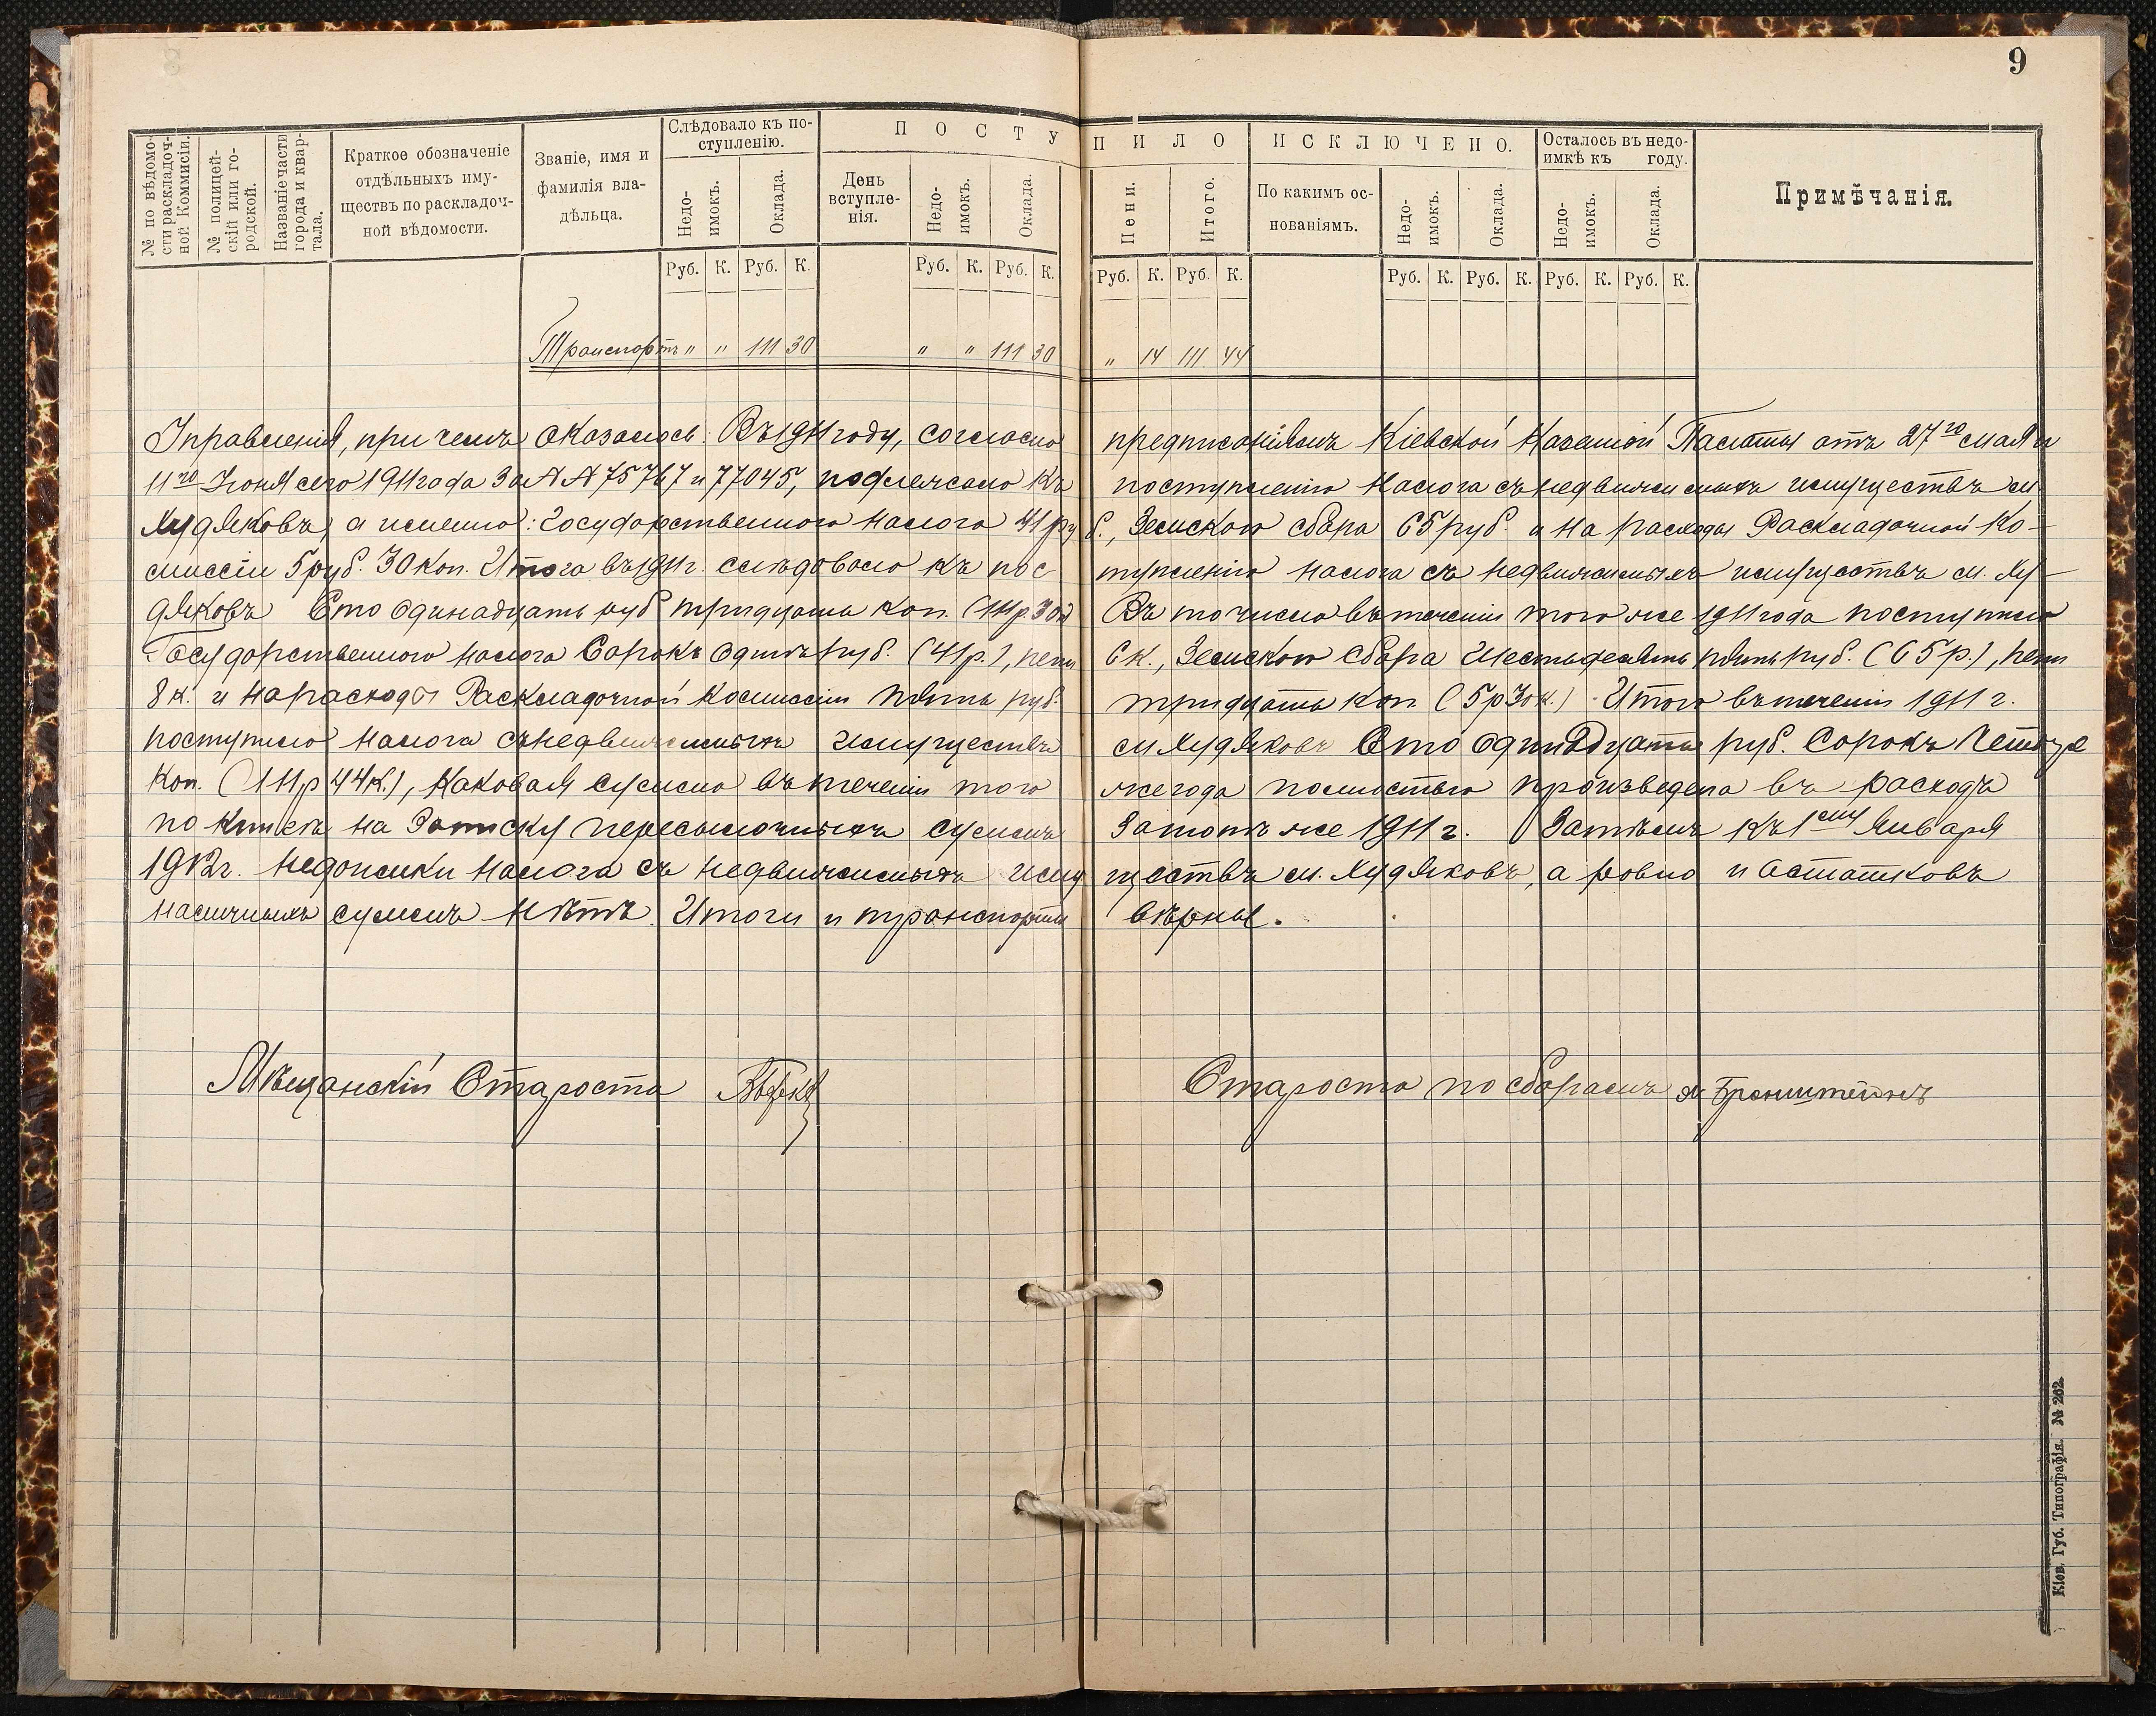 9
№ по вѣдомости раскладочной Коммисіи.
№ полицейскій или городской.
Названіе части города и квартала.
Краткое обозначеніе отдѣльныхъ имуществъ по раскладочной вѣдомости.
Званіе, имя и фамилія владѣльца.
Слѣдовало къ поступленію.
Недоимокъ.
Оклада.
ПОСТУПИЛО
День вступленія.
Недоимокъ.
Оклада.
Пени.
Итого.
ИСКЛЮЧЕНО.
По какимъ основаніямъ.
Недоимокъ.
Оклада.
Осталось въ недоимкѣ къ году.
Недоимокъ.
Оклада.
Примѣчанія.
Руб. К. Руб. К. Руб. К. Руб. К. Руб. К. Руб. К. Руб. К. Руб. К. Руб. К. Руб. К.
Транспортъ " " 111 30 " " 111 30 " 14 111 44
Управленія, при чемъ оказалось: Въ 1911 году, согласно предписаніямъ Кіевской Казенной Палаты отъ 27го мая и
11го Іюня сего 1911 года за №№ 75767 и 77045, подлежало къ поступленію налога съ недвижимыхъ имуществъ м.
Худяковъ, а именно: Государственного налога 41 руб., Земского сбора 65 руб. и на расходы Раскладочной Ко-
миссіи 5 руб. 30 коп. Итого въ 1911 г. слѣдовало къ поступленію налога съ недвижимыхъ имуществъ м. Ху-
дяковъ Сто одинадцать руб тридцать коп. (111 р. 30 к) Въ то число въ теченіи того же 1911 года поступило
Государственного налога Сорокъ одинъ руб. (41 р.), пени 6 к., Земского сбора Шестьдесятъ пять руб. (65 р.), пени
8 к. и на расходы Раскладочной Комиссіи пять руб. тридцать коп (5 р 30 к.) Итого въ теченіи 1911 г.
поступило налога съ недвижимыхъ имуществъ м Худяковъ Сто одинадцать руб. Сорокъ Четыре
Коп. (111 р 44 к.), каковая сумма въ теченіи того же года полностью произведена въ расходъ
по книгѣ на Записку пересылочныхъ суммъ за тотъ же 1911 г. Затѣмъ къ 1ому Января
1912 г. недоимки налога съ недвижимыхъ имуществъ м. Худяковъ, а ровно и Осташковъ
наличныхъ суммъ нѣтъ. Итоги и транспорты вѣрны.
Мѣщанскій Староста
Староста по сборамъ Бронштейнъ
Кіев. Губ. Типографія. № 262.